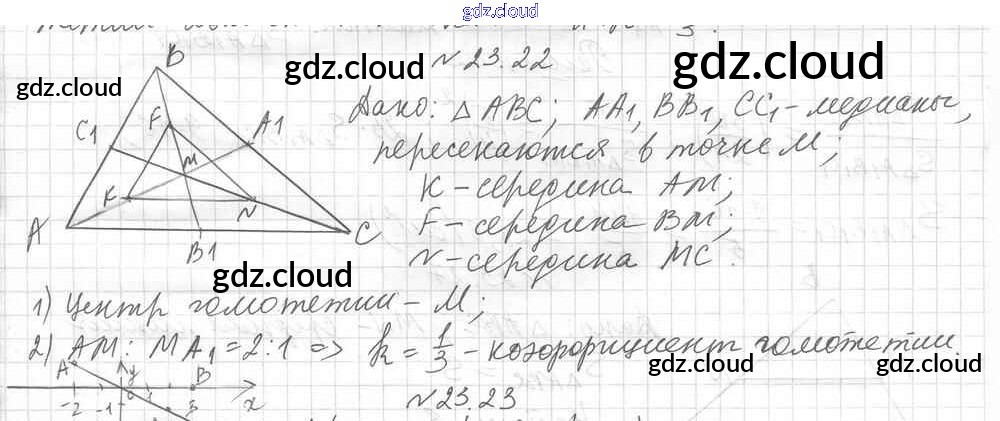 gdz.cloud
№ 23.22
gdz.cloud
gdz.cloud
gdz.cloud
Дано: △ABC; AA1, BB1, CC1 - медианы,
пересекаются в точке M;
K - середина AM;
F - середина BM;
N - середина MC.
B
C1
F
A1
M
K
N
A
B1
C
gdz.cloud
1) Центр гомотетии - M;
2) AM : MA1 = 2:1 => k = 1/3 - коэффициент гомотетии.
gdz.cloud
gdz.cloud
A
y
B
-2
-1
x
№ 23.23